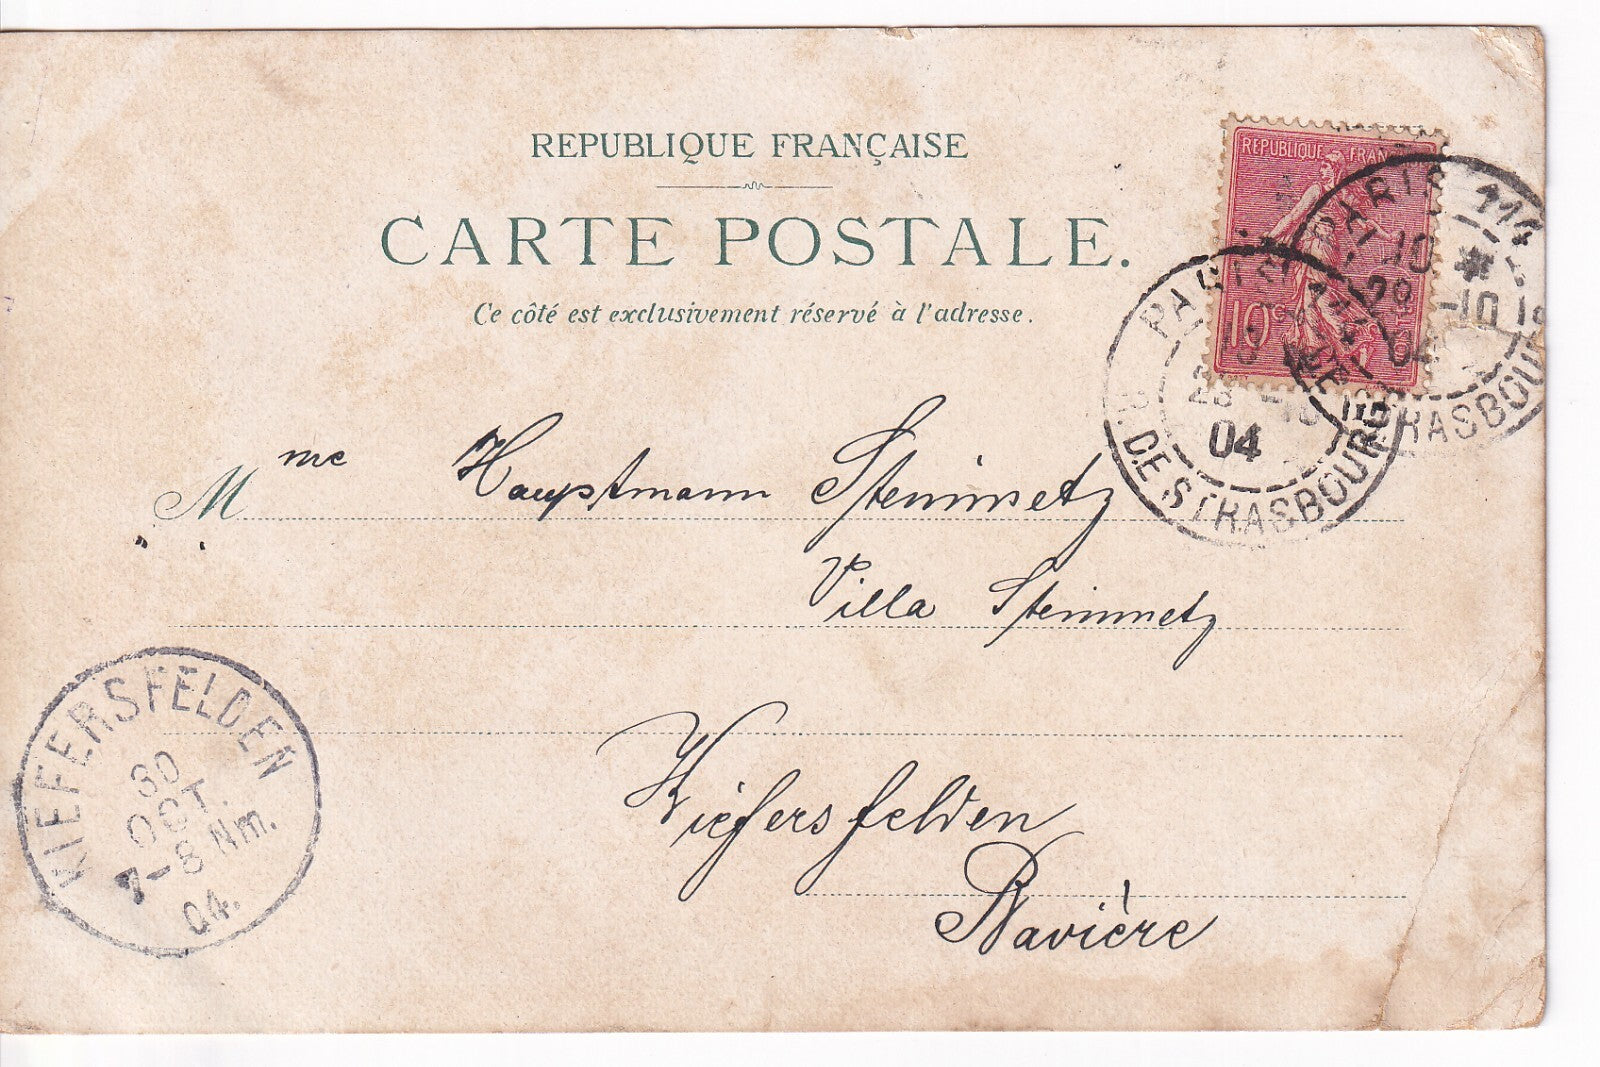 REPUBLIQUE FRANÇAISE
CARTE POSTALE.
Ce côté est exclusivement réservé à l'adresse.
REPUBLIQUE FRANÇAISE
10c
PARIS
28 -10
04
DE STRASBOURG
PARIS
-10
04
STRASBOURG
Mme Hauptmann Steinmetz
Villa Steinmetz
Kiefersfelden
Bavière
KIEFERSFELDEN
30
OCT.
7-8 Nm.
04.